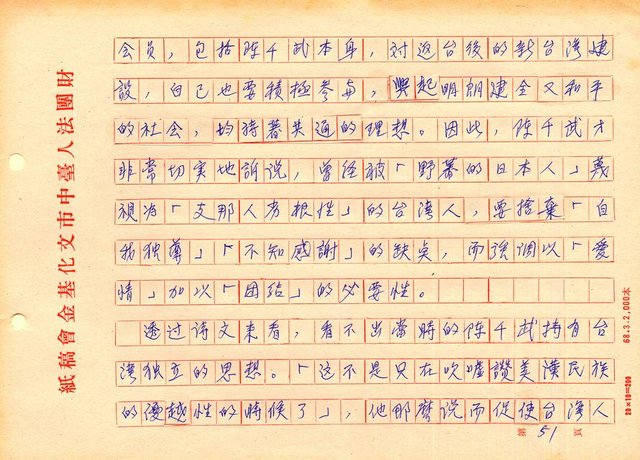 会员，包括陈千武本身，对返台後的新台湾建
設，自己也要積極参与，興起明朗建全又和平
的社会，均持著共通的理想。因此，陈千武才
非常切实地訴说，曾经被「野蕃的日本人」蔑
視为「支那人劣根性」的台湾人，要捨棄「自
我独尊」「不知感謝」的缺点，而強调以「爱
情」加以「团结」的必要性。
透过诗文来看，看不出当時的陈千武持有台
湾独立的思想。「这不是只在吹嘘讚美漢民族
的優越性的時候了」，他那麼说而促使台湾人
第 51 頁
財團法人臺中市文化基金會稿紙
68.3.2,000本
20×10=200